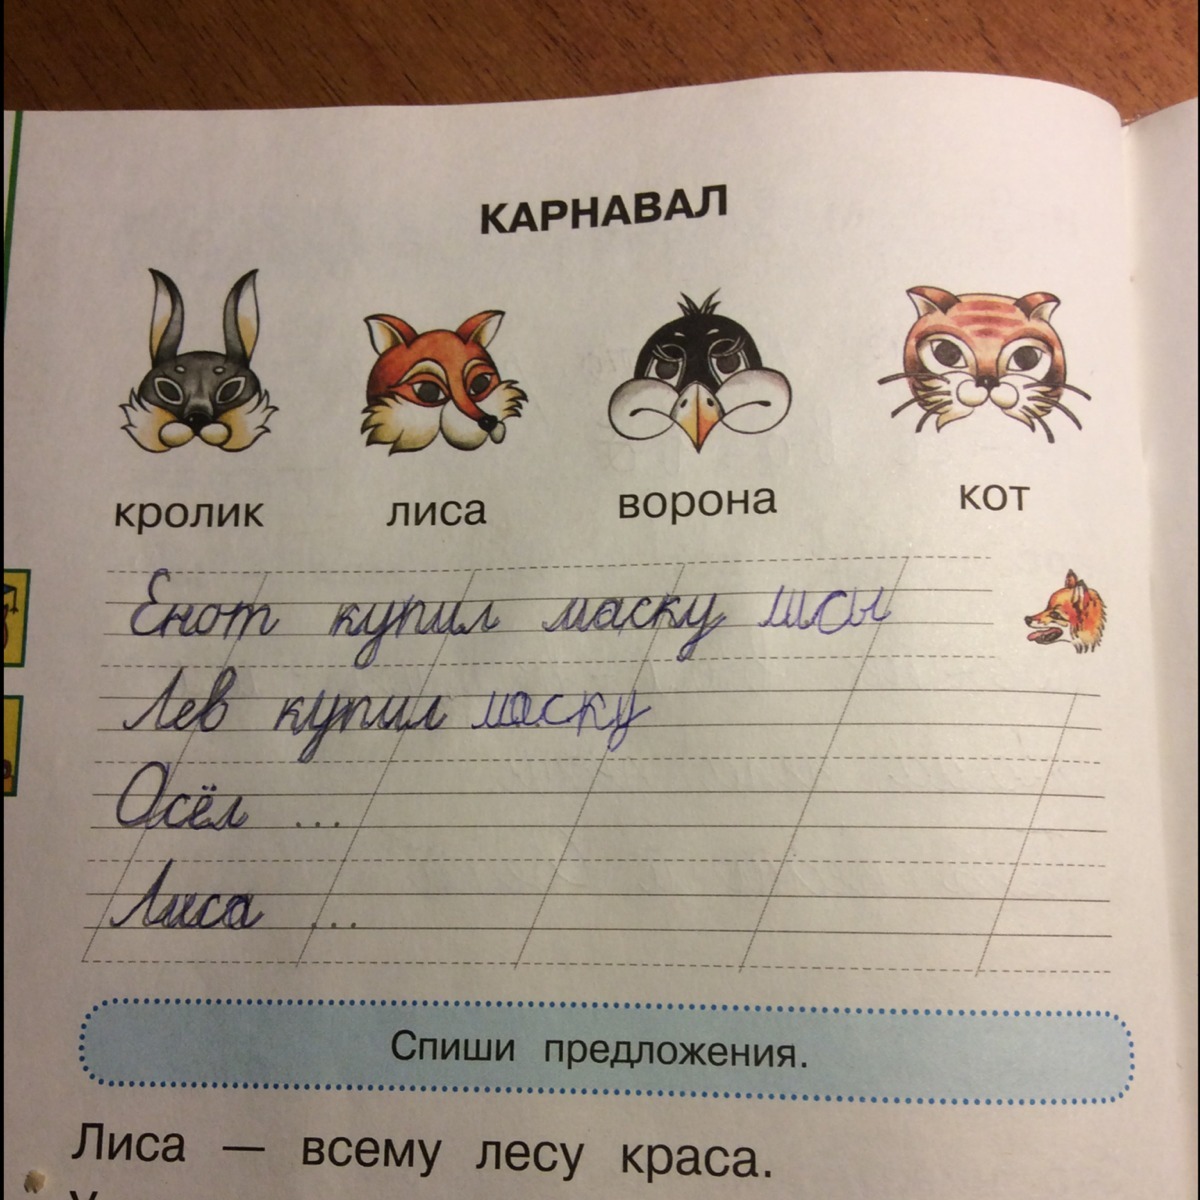 КАРНАВАЛ
кролик лиса ворона кот
Енот купил маску лисы
Лев купил маску
Осёл ...
Лиса ...
Спиши предложения.
Лиса — всему лесу краса.